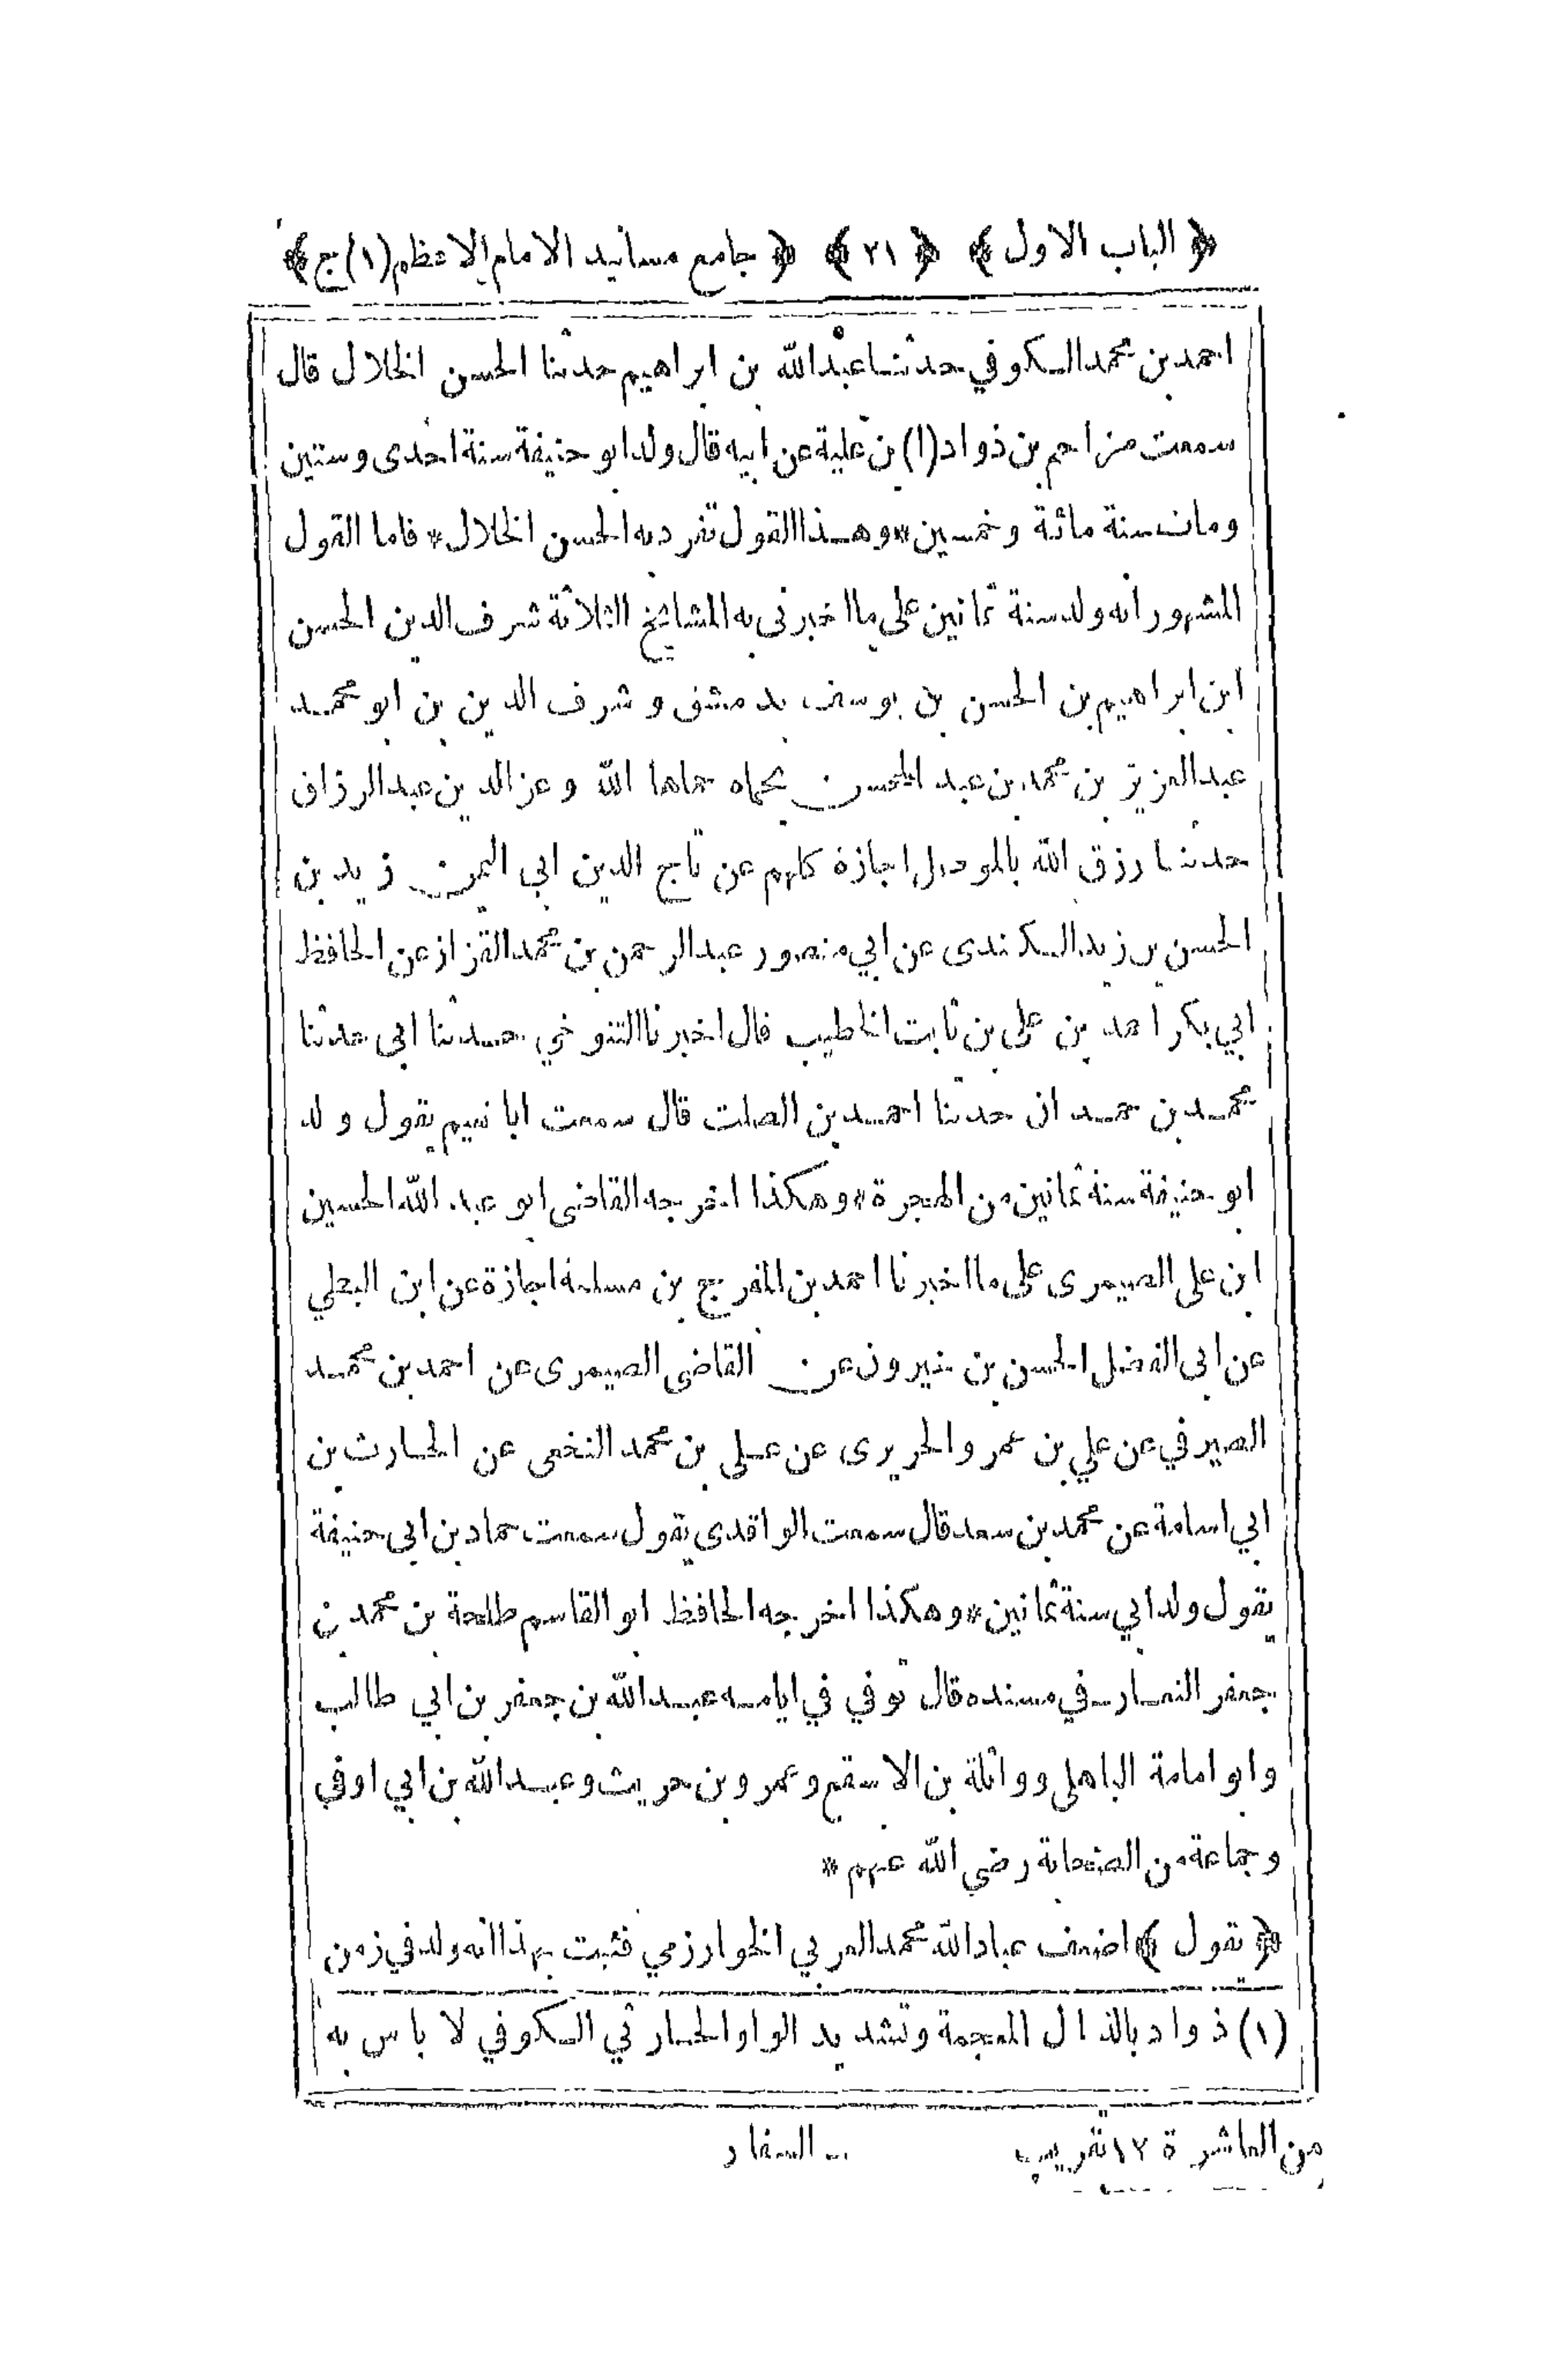 ﴿ الباب الاول ﴾ ﴿ ٢١ ﴾ ﴿ جامع مسانيد الامام الاعظم (١) ج ﴾
احمد بن محمد الكوفي حدثنا عبد الله بن ابراهيم حدثنا الحسن الخلال قال
سمعت مزاحم بن ذواد (١) بن علية عن ابيه قال ولد ابو حنيفة سنة احدى وستين
ومات سنة مائة وخمسين * وهذا القول تفرد به الحسن الخلال * فاما القول
المشهور انه ولد سنة ثمانين على ما اخبرنى به المشائخ الثلاثة شرف الدين الحسن
ابن ابراهيم بن الحسن بن يوسف بدمشق وشرف الدين بن ابو محمد
عبد العزيز بن محمد بن عبد المحسن بحماه حماها الله وعز الدين عبد الرزاق
حدثنا رزق الله بالموصل اجازة كلهم عن تاج الدين ابى اليمن زيد بن
الحسن بن زيد الكندى عن ابي منصور عبد الرحمن بن محمد القزاز عن الحافظ
ابي بكر احمد بن على بن ثابت الخطيب قال اخبرنا التنوخي حدثنا ابى حدثنا
محمد بن حمدان حدثنا احمد بن الصلت قال سمعت ابا نعيم يقول ولد
ابو حنيفة سنة ثمانين من الهجرة * وهكذا اخرجه القاضى ابو عبد الله الحسين
ابن على الصيمرى على ما اخبرنا احمد بن المفرج بن مسلمة اجازة عن ابن البطي
عن ابى الفضل الحسن بن خيرون عن القاضى الصيمرى عن احمد بن محمد
الصيرفي عن علي بن عمرو الحريرى عن على بن محمد النخعى عن الحارث بن
ابي اسامة عن محمد بن سعد قال سمعت الواقدى يقول سمعت حماد بن ابى حنيفة
يقول ولد ابي سنة ثمانين * وهكذا اخرجه الحافظ ابو القاسم طلحة بن محمد بن
جعفر في مسنده قال توفي في ايامه عبد الله بن جعفر بن ابي طالب
وابو امامة الباهلى وواثلة بن الاسقع وعمرو بن حريث وعبد الله بن ابي اوفي
وجماعة من الصحابة رضي الله عنهم *
﴿ يقول ﴾ اضعف عباد الله محمد العربي الخوارزمي فثبت بهذا انه ولد في زمن
(١) ذواد بالذال المعجمة وتشديد الواو الحارثي الكوفي لا باس به
من العاشرة ١٢ تقريب